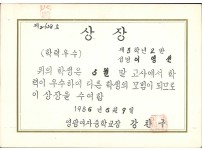 상장
(학력우수)
제3학년2반
성명 이영선
위의 학생은 5월말 고사에서 학
력이 우수하여 다른 학생의 모범이 되므로
이 상장을 수여함
1986년 6월 9일
영광여자중학교장 강찬구